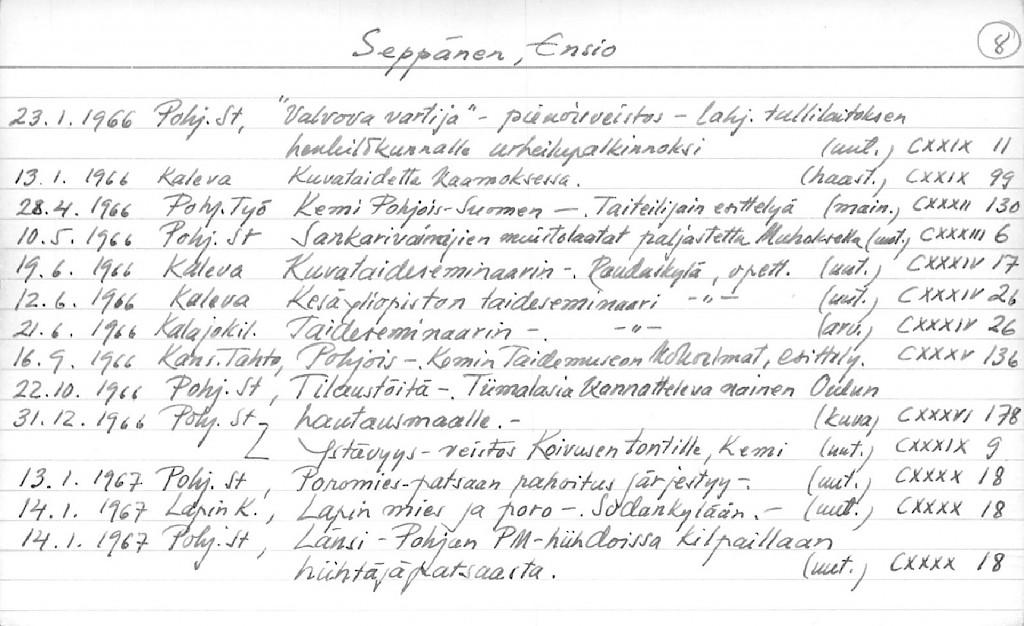 Seppänen, Ensio 8
23.1.1966 Pohj. St, "Valvova vartija" - pienoisveistos - lahj. tullilaitoksen
henkilökunnalle urheilupalkinnoksi (uut.) CXXIX 11
13.1.1966 Kaleva Kuvataidetta Kaamoksessa. (haast.) CXXIX 99
28.4.1966 Pohj. Työ Kemi Pohjois-Suomen - Taiteilijain esittelyä (main.) CXXXII 130
10.5.1966 Pohj. St Sankarivainajien muistolaatat paljastettu Muhoksella (uut.) CXXXIII 6
19.6.1966 Kaleva Kuvataideseminaarin -. Raudaskylä, opett. (uut.) CXXXIV 17
12.6.1966 Kaleva Kesäyliopiston taideseminaari -"- (uut.) CXXXIV 26
21.6.1966 Kalajokil. Taideseminaarin - -"- (arv.) CXXXIV 26
16.9.1966 Kans. Tahto, Pohjois - Kemin Taidemuseon kokoelmat, esittely. CXXXV 136
22.10.1966 Pohj. St, Tilaustöitä -. Tiimalasia kannatteleva nainen Oulun
31.12.1966 Pohj. St hautausmaalle. - (kuva) CXXXVI 178
Ystävyys-veistos Koivusen tontille, Kemi (uut.) CXXXIX 9
13.1.1967 Pohj. St, Poromies-patsaan rahoitus järjestyy -. (uut.) CXXXX 18
14.1.1967 Lapin K., Lapin mies ja poro -. Sodankylään. - (uut.) CXXXX 18
14.1.1967 Pohj. St, Länsi-Pohjan PM-hiihdoissa kilpaillaan
hiihtäjäpatsaasta. (uut.) CXXXX 18